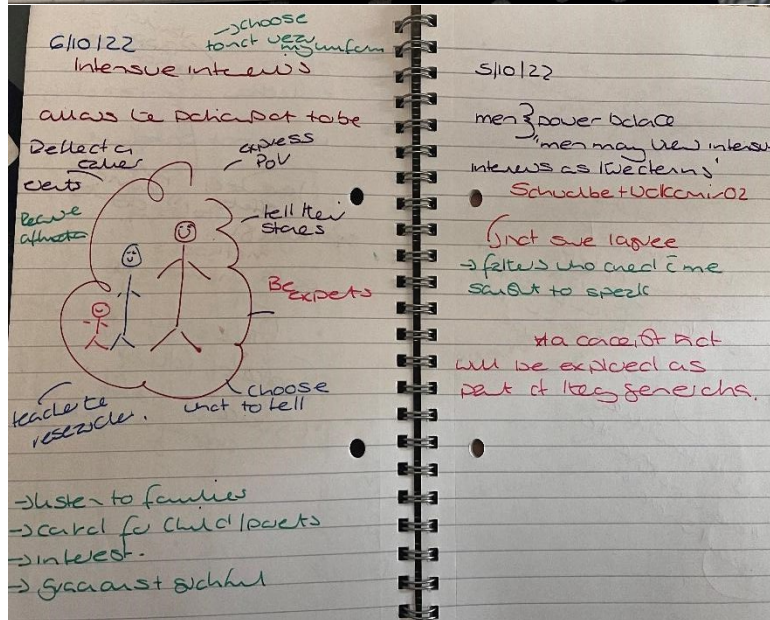 6/10/22
→choose
to not wear
my uniform
Intensive interviews
allows the participant to be
Reflect on
earlier
events
express
PoV
Receive
affirmation
tell their
stories
Be
experts
choose
what to tell
teach the
researcher.
→listen to families
→cared for child/parents
→interest.
→gracious + grateful
5/10/22
men } power balance
"men may view intensive
interviews as threatening"
Schwalbe + Wolkomir 02
not sure I agree
→ fathers who cared
sought to speak
*a concept that
will be explored as
part of theory generation.